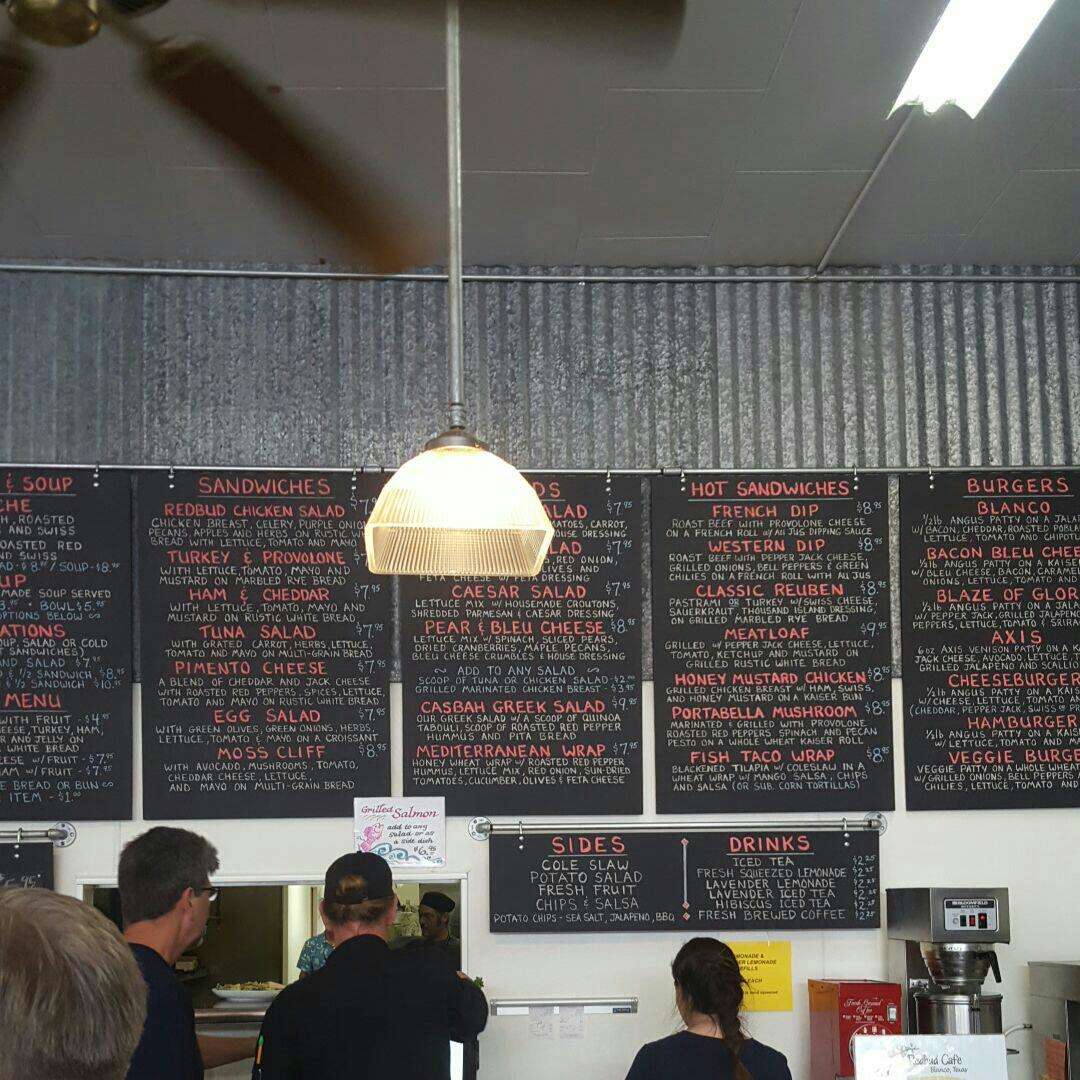 & SOUP
CHE
H, ROASTED
AND SWISS
ROASTED RED
ND SWISS
AD·$8.95/SOUP·$8.95
UP
MADE SOUP SERVED
BOWL $5.95
OPTIONS BELOW
ATIONS
OUP, SALAD OR COLD
SANDWICHES)
AND SALAD·$7.95
& 1/2 SANDWICH $8.95
1/2 SANDWICH $10.95
MENU
WITH FRUIT - $4.95
CHEESE, TURKEY, HAM,
ER AND JELLY ON
WHITE BREAD
CHEESE W/FRUIT - $7.95
HAM W/FRUIT - $7.95
BREAD OR BUN
ITEM - $1.00
SANDWICHES
REDBUD CHICKEN SALAD
CHICKEN BREAST, CELERY, PURPLE ONION
PECANS, APPLES AND HERBS ON RUSTIC
BREAD WITH LETTUCE, TOMATO AND MAYO
TURKEY & PROVOLONE
WITH LETTUCE, TOMATO, MAYO AND
MUSTARD ON MARBLED RYE BREAD
HAM & CHEDDAR $7.95
WITH LETTUCE, TOMATO, MAYO AND
MUSTARD ON RUSTIC WHITE BREAD
TUNA SALAD $7.95
WITH GRATED CARROT, HERBS, LETTUCE,
TOMATO AND MAYO ON MULTI-GRAIN BREAD
PIMENTO CHEESE $7.95
A BLEND OF CHEDDAR AND JACK CHEESE
WITH ROASTED RED PEPPERS, SPICES, LETTUCE,
TOMATO AND MAYO ON RUSTIC WHITE BREAD
EGG SALAD $7.95
WITH GREEN OLIVES, GREEN ONIONS, HERBS,
LETTUCE, TOMATO & MAYO ON A CROISSANT
MOSS CLIFF $8.95
WITH AVOCADO, MUSHROOMS, TOMATO,
CHEDDAR CHEESE, LETTUCE,
AND MAYO ON MULTI-GRAIN BREAD
DS
LAD $7.95
TOMATOES, CARROT,
HOUSE DRESSING
LAD $7.95
RED ONION,
OLIVES AND
FETA CHEESE W/ FETA DRESSING
CAESAR SALAD $7.95
LETTUCE MIX W/ HOUSEMADE CROUTONS,
SHREDDED PARMESAN & CAESAR DRESSING
PEAR & BLEU CHEESE $8.95
LETTUCE MIX W/ SPINACH, SLICED PEARS,
DRIED CRANBERRIES, MAPLE PECANS,
BLEU CHEESE CRUMBLES & HOUSE DRESSING
~ ADD TO ANY SALAD ~
SCOOP OF TUNA OR CHICKEN SALAD - $2.00
GRILLED MARINATED CHICKEN BREAST - $3.95
CASBAH GREEK SALAD $9.95
OUR GREEK SALAD W/ A SCOOP OF QUINOA
TABOULI, SCOOP OF ROASTED RED PEPPER
HUMMUS AND PITA BREAD
MEDITERRANEAN WRAP $7.95
HONEY WHEAT WRAP W/ ROASTED RED PEPPER
HUMMUS, LETTUCE MIX, RED ONION, SUN-DRIED
TOMATOES, CUCUMBER, OLIVES & FETA CHEESE
HOT SANDWICHES
FRENCH DIP $8.95
ROAST BEEF WITH PROVOLONE CHEESE
ON A FRENCH ROLL W/ AU JUS DIPPING SAUCE
WESTERN DIP $8.95
ROAST BEEF WITH PEPPER JACK CHEESE,
GRILLED ONIONS, BELL PEPPERS & GREEN
CHILIES ON A FRENCH ROLL WITH AU JUS
CLASSIC REUBEN $8.95
PASTRAMI OR TURKEY W/ SWISS CHEESE,
SAUERKRAUT, THOUSAND ISLAND DRESSING,
ON GRILLED MARBLED RYE BREAD
MEATLOAF $9.95
GRILLED W/ PEPPER JACK CHEESE, LETTUCE,
TOMATO, KETCHUP AND MUSTARD ON
GRILLED RUSTIC WHITE BREAD
HONEY MUSTARD CHICKEN $8.95
GRILLED CHICKEN BREAST W/ HAM, SWISS,
AND HONEY MUSTARD ON A KAISER BUN
PORTABELLA MUSHROOM $8.95
MARINATED & GRILLED WITH PROVOLONE
ROASTED RED PEPPERS SPINACH AND PECAN
PESTO ON A WHOLE WHEAT KAISER ROLL
FISH TACO WRAP $8.95
BLACKENED TILAPIA W/ COLESLAW IN A
WHEAT WRAP W/ MANGO SALSA, CHIPS
AND SALSA (OR SUB. CORN TORTILLAS)
BURGERS
BLANCO
1/2lb ANGUS PATTY ON A JALA
W/ BACON, CHEDDAR, ROASTED POBLA
LETTUCE, TOMATO AND CHIPOTL
BACON BLEU CHEE
1/2lb ANGUS PATTY ON A KAISE
W/ BLEU CHEESE, BACON, CARAMEL
ONIONS, LETTUCE, TOMATO AND
BLAZE OF GLOR
1/2lb ANGUS PATTY ON A JALA
W/ PEPPER JACK, GRILLED JALAPENO
PEPPERS, LETTUCE, TOMATO & SRIRA
AXIS
6oz AXIS VENISON PATTY ON A K
JACK CHEESE, AVOCADO, LETTUCE, T
GRILLED JALAPENO AND SCALLIO
CHEESEBURGER
1/2lb ANGUS PATTY ON A KAIS
W/ CHEESE, LETTUCE, TOMATO, AND
(CHEDDAR, PEPPER JACK, SWISS, OR PR
HAMBURGER
1/2lb ANGUS PATTY ON A KAIS
W/ LETTUCE, TOMATO AND MA
VEGGIE BURGE
VEGGIE PATTY ON A WHOLE WHEAT
W/ GRILLED ONIONS, BELL PEPPERS &
CHILIES, LETTUCE, TOMATO AND
Grilled Salmon
add to any
salad or as
a side dish
$6.95
SIDES
COLE SLAW
POTATO SALAD
FRESH FRUIT
CHIPS & SALSA
POTATO CHIPS - SEA SALT, JALAPEÑO, BBQ
DRINKS
ICED TEA $2.25
FRESH SQUEEZED LEMONADE $2.25
LAVENDER LEMONADE $2.25
LAVENDER ICED TEA $2.25
HIBISCUS ICED TEA $2.25
FRESH BREWED COFFEE $2.25
MONADE &
ER LEMONADE
FILLS
EACH
BLOOMFIELD
Fresh Ground
Coffee
Redbud Cafe
Blanco, Texas